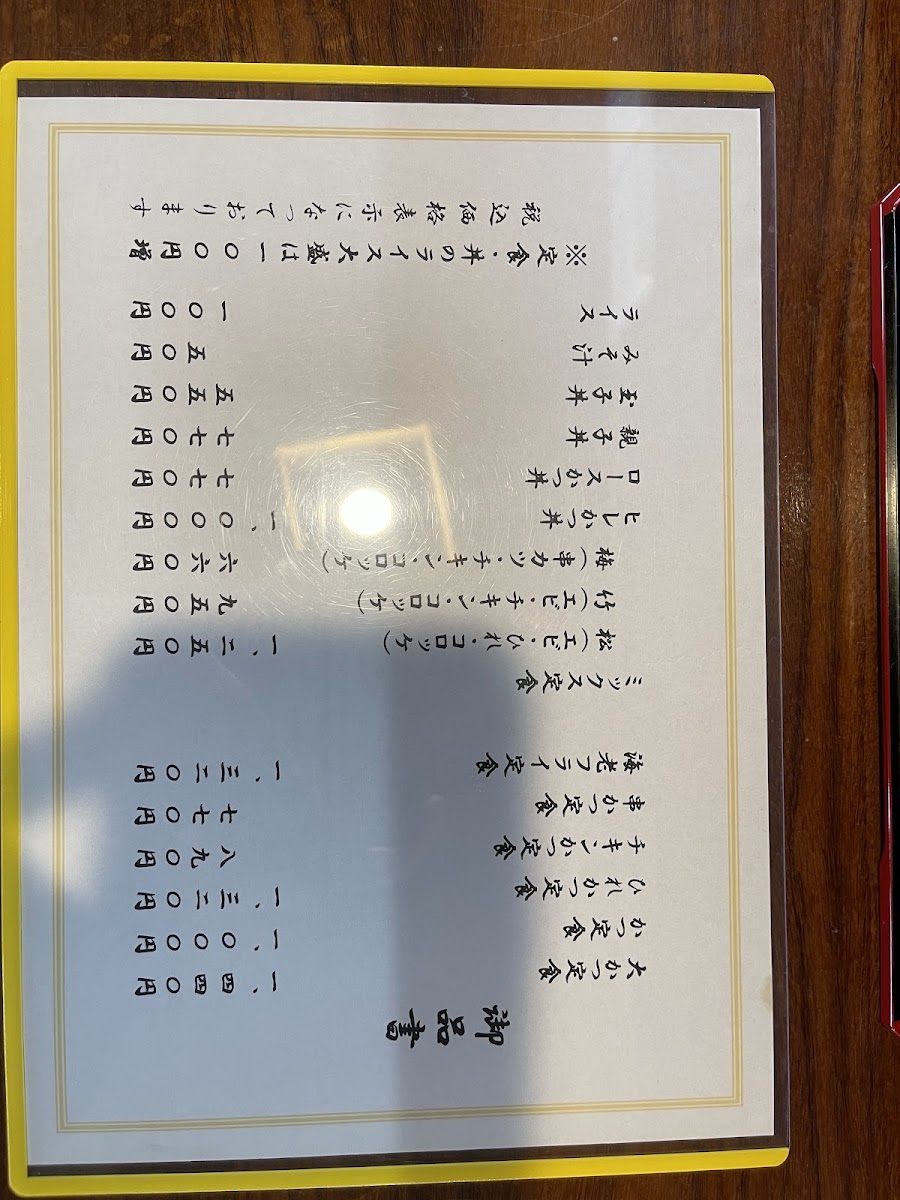 御品書
大かつ定食 一、四四〇円
かつ定食 一、〇〇〇円
ひれかつ定食 一、三二〇円
チキンかつ定食 八九〇円
串かつ定食 七七〇円
海老フライ定食 一、三二〇円
ミックス定食
松(エビ・ひれ・コロッケ) 一、二五〇円
竹(エビ・チキン・コロッケ) 九五〇円
梅(串カツ・チキン・コロッケ) 六六〇円
ヒレかつ丼 一、〇〇〇円
ロースかつ丼 七七〇円
親子丼 七七〇円
玉子丼 五五〇円
みそ汁 五〇円
ライス 一〇〇円
※定食・丼のライス大盛は一〇〇円増
税込価格表示になっております